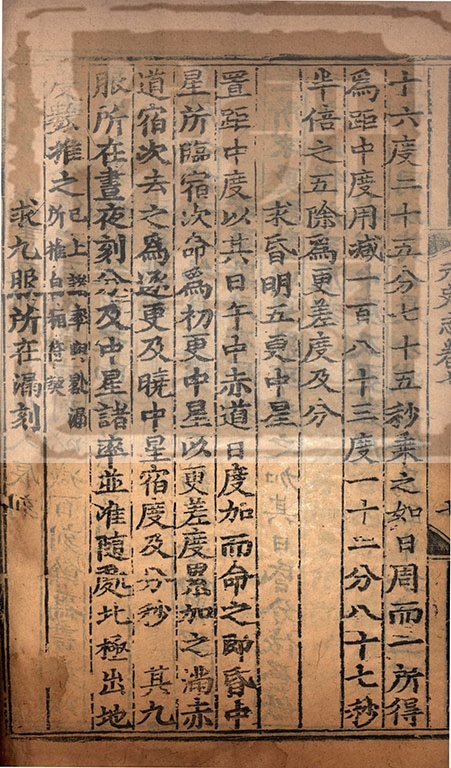 十六度二十五分七十五秒乘之如日周而一所得
爲距中度用减一百八十三度一十二分八十七秒
半倍之五除爲更差度及分
求昏明五更中星
置距中度以其日午中赤道日度加而命之即昏中
星所臨宿次命爲初更中星以更差度累加之滿赤
道宿次去之爲逐更及曉中星宿度及分秒　其九
服所在晝夜刻分及中星諸率並准隨處北極出地
度數推之已上諸率與晷漏
所推自相符契
求九服所在漏刻